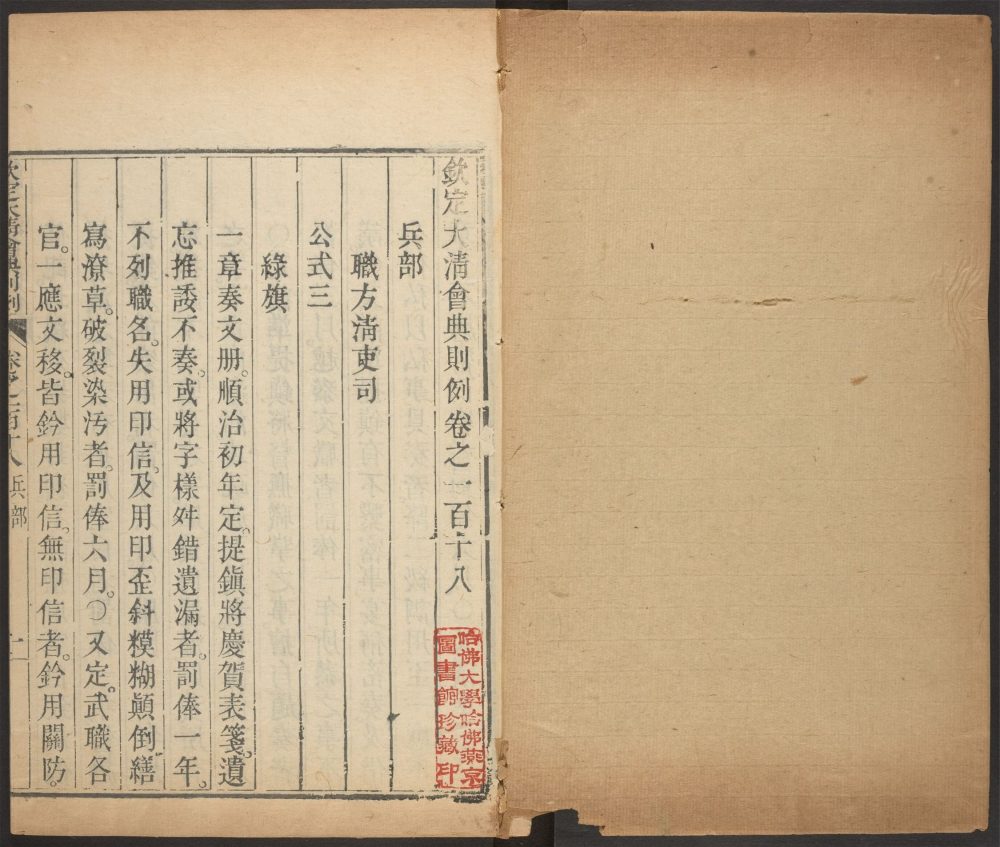 欽定大清會典則例卷之一百十八
哈佛大學哈佛燕京
圖書館珍藏印
兵部
職方清吏司
公式三
綠旗
一章奏文册。順治初年定。提鎮將慶賀表箋。遺
忘推諉不奏。或將字樣舛錯遺漏者。罰俸一年。
不列職名。失用印信。及用印歪斜糢糊顛倒繕
寫潦草。破裂染污者。罰俸六月。○又定。武職各
官。一應文移。皆鈐用印信。無印信者。鈐用關防。
欽定大清會典則例 卷之一百十八 兵部 一